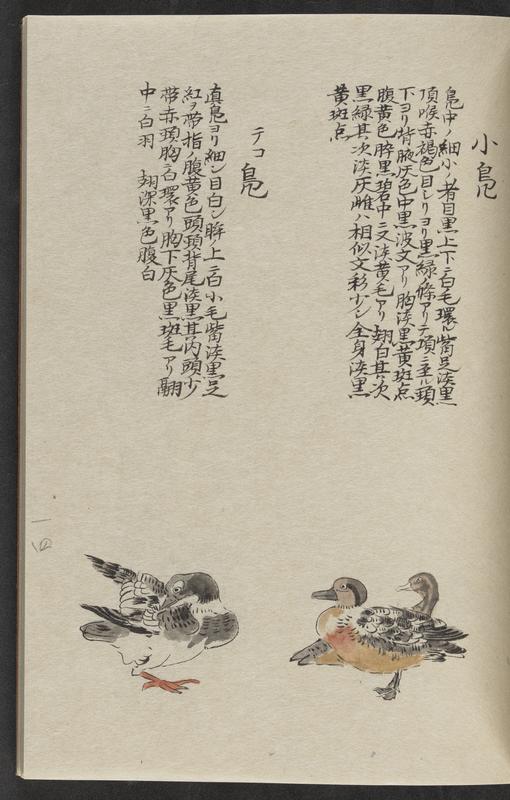 小鳧
鳧中ノ細小ノ者目黒上下ニ白毛環ル觜足淡黒
頂喉赤褐色目シリヨリ黒緑ノ條アリテ項ニ至ル頭
下ヨリ背腋灰色中黒波文アリ胸淡黒黄斑点
腹黄色脖黒碧中ニ又淡黄毛アリ翅白其次
黒緑其次淡灰雌ハ相似文彩少シ全身淡黒
黄斑点
テコ鳧
真鳧ヨリ細シ目白シ眸上ニ白小毛觜淡黒足
紅ヲ帯指ノ腹黄色頭頸背尾淡黒其内頭少
帯赤頸胸ニ白環アリ胸下灰色黒斑毛アリ翮
中ニ白羽 翅深黒色腹白
一四